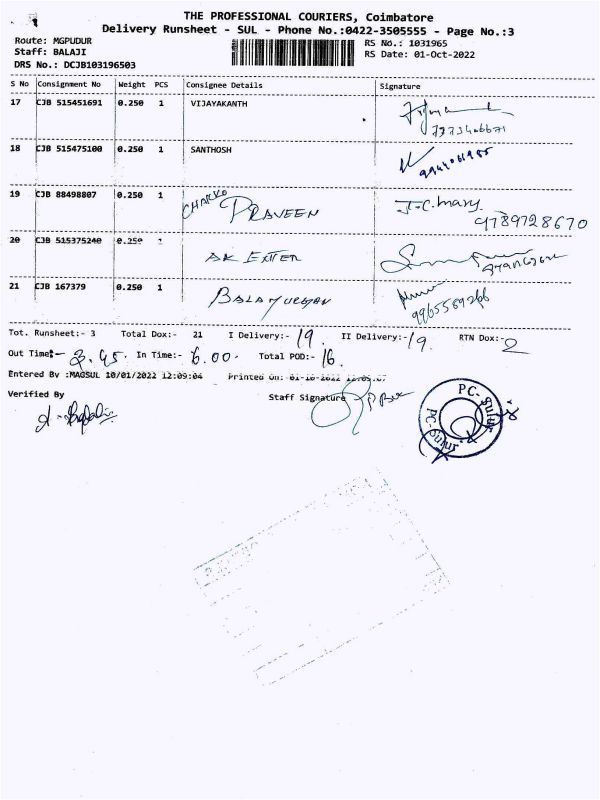 THE PROFESSIONAL COURIERS, Coimbatore
Delivery Runsheet - SUL - Phone No.:0422-3505555 - Page No.:3
Route: MGPUDUR RS No.: 1031965
Staff: BALAJI RS Date: 01-Oct-2022
DRS No.: DCJB103196503
S No Consignment No Weight PCS Consignee Details Signature
17 CJB 515451691 0.250 1 VIJAYAKANTH
18 CJB 515475100 0.250 1 SANTHOSH
19 CJB 88498807 0.250 1 CHARKO PRAVEEN J.C.Mary
9789728670
20 CJB 515375240 0.250 1 AK ENTER
21 CJB 167379 0.250 1 BALAMURUGAN
9965589266
Tot. Runsheet:- 3 Total Dox:- 21 I Delivery:- 19. II Delivery:- 19. RTN Dox:- 2
Out Time:- 3.45. In Time:- 6.00. Total POD:- 16.
Entered By :MAGSUL 10/01/2022 12:09:04 Printed On:
Verified By Staff Signature
PC-Sulur
PC-Sulur